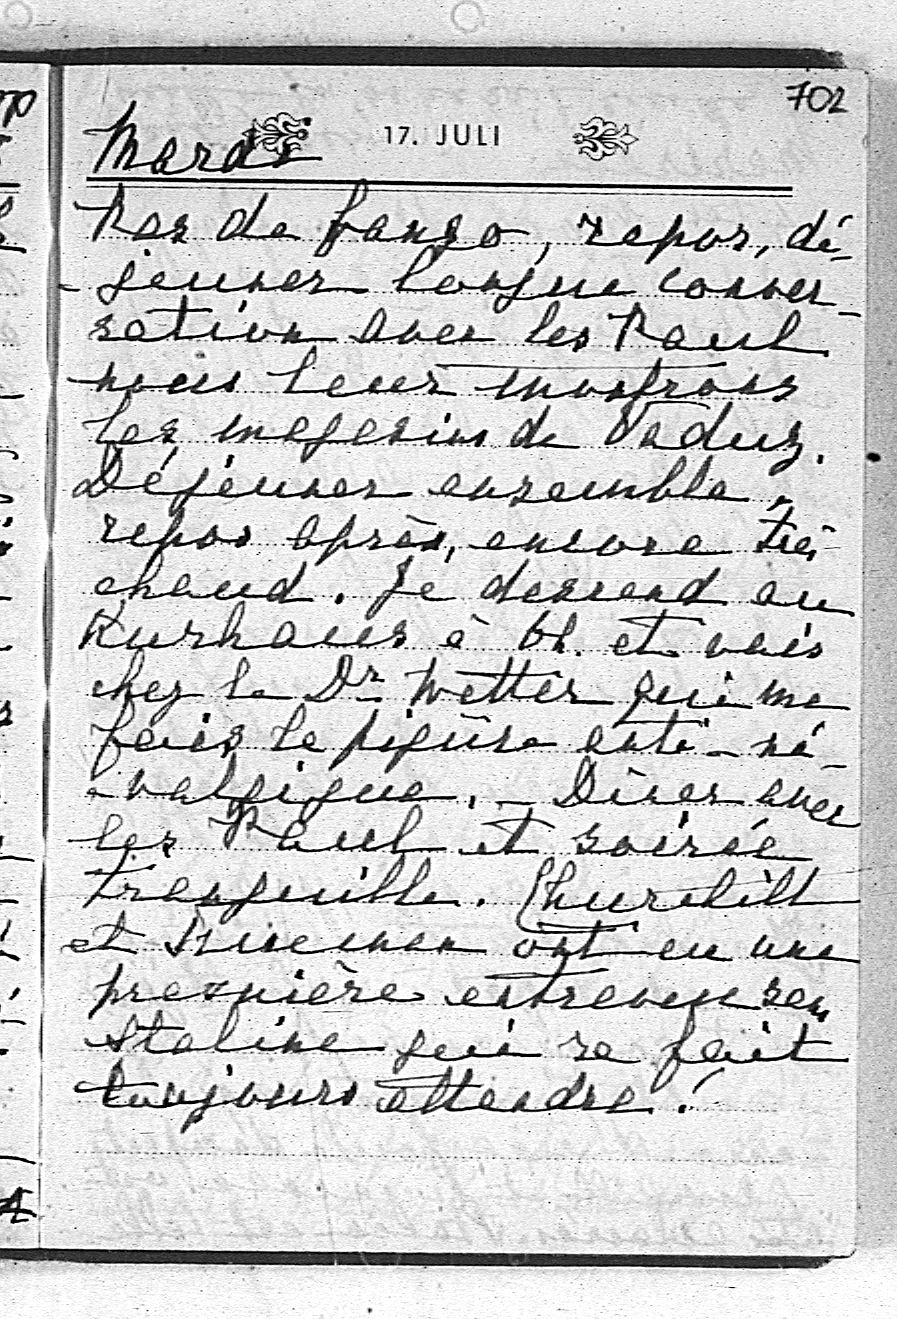 702
17. JULI
Mardi
Pas de fango, repos, dé-
jeuner longue conver-
sation avec les Paul
nous leur montrons
les magasins de Vaduz.
Déjeuner ensemble,
repos après, encore très
chaud. Je descend au
Kurhaus à 6h. et vais
chez le Dr. Wetter qui me
fais le piqûre anti-né-
vralgique. – Dîner avec
les Paul et soirée
tranquille. Churchill
et Trueman ont eu une
première entrevue san
Staline qui se fait
toujours attendre!